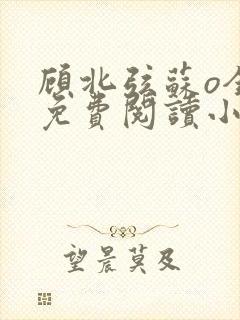 顾北弦蘇o全
免費閱讀小
望晨莫及